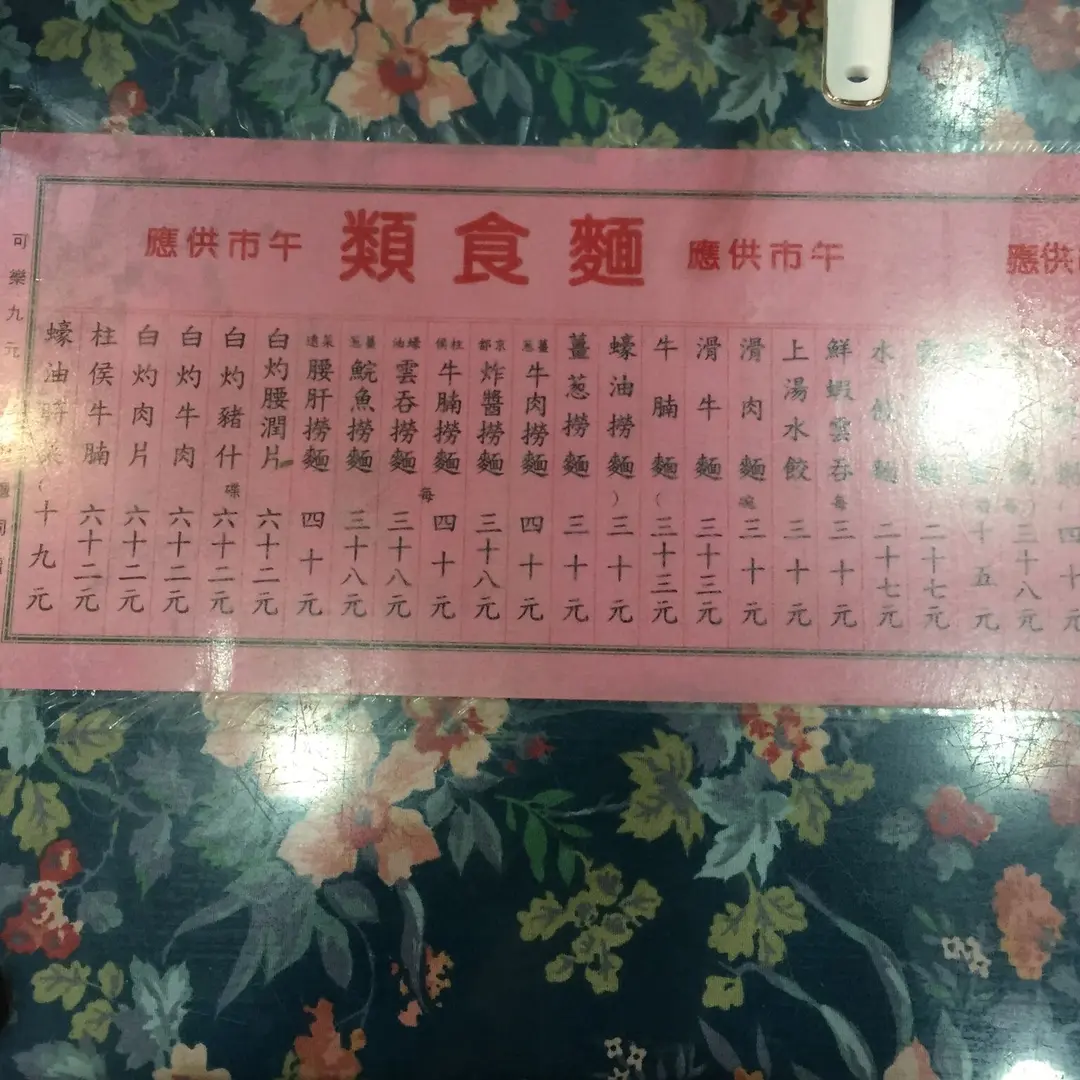 供應
午市供應
麵食類
午市供應
四十元
三十八元
十五元
二十七元
水餃麵 二十七元
鮮蝦雲吞 每 三十元
上湯水餃 三十元
滑肉麵 碗 三十元
滑牛麵 三十三元
牛腩麵 ( 三十三元
蠔油撈麵 ) 三十元
薑葱撈麵 三十元
薑葱牛肉撈麵 四十元
京都炸醬撈麵 三十八元
柱侯牛腩撈麵 每 四十元
蠔油雲吞撈麵 三十八元
薑葱鯇魚撈麵 三十八元
菜遠腰肝撈麵 四十元
白灼腰潤片 六十二元
白灼豬什 碟 六十二元
白灼牛肉 六十二元
白灼肉片 六十二元
柱侯牛腩 六十二元
蠔油時菜 ( 十九元
可樂九元